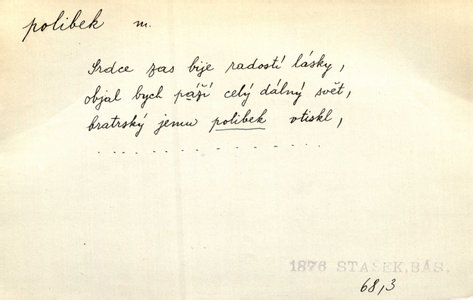 polibek m.
Srdce zas bije radostí lásky,
objal bych páží celý dálný svět,
bratrský jemu polibek vtiskl,
. . . . . . . . . . . . . . .
1876 STAŠEK, BÁS.
68,3